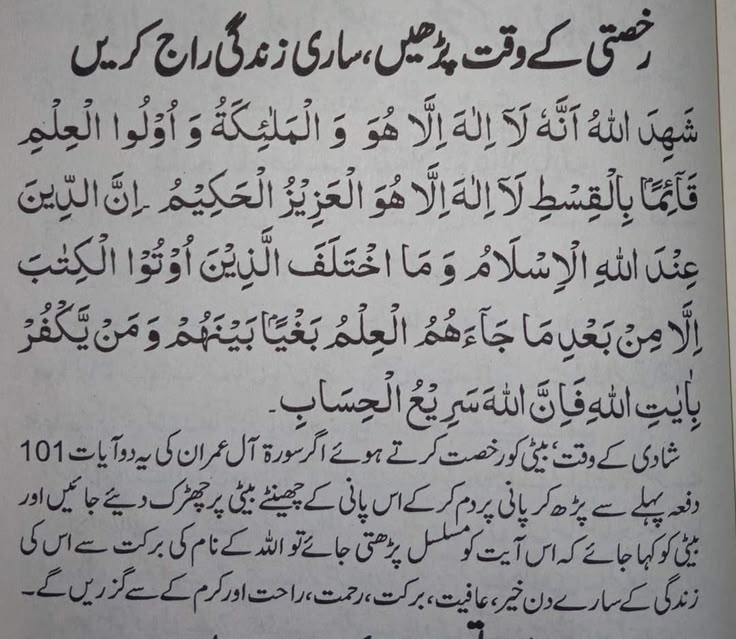 رخصتی کے وقت پڑھیں، ساری زندگی راج کریں
شَهِدَ اللهُ اَنَّهٗ لَآ اِلٰهَ اِلَّا هُوَ وَ الْمَلٰئِكَةُ وَ اُوْلُوا الْعِلْمِ
قَآئِمًاۢ بِالْقِسْطِ لَآ اِلٰهَ اِلَّا هُوَ الْعَزِيْزُ الْحَكِيْمُ ۔ اِنَّ الدِّيْنَ
عِنْدَ اللهِ الْاِسْلَامُ وَ مَا اخْتَلَفَ الَّذِيْنَ اُوْتُوْا الْكِتٰبَ
اِلَّا مِنْ بَعْدِ مَا جَآءَهُمُ الْعِلْمُ بَغْيًاۢ بَيْنَهُمْ وَ مَنْ يَّكْفُرْ
بِاٰيٰتِ اللهِ فَاِنَّ اللهَ سَرِيْعُ الْحِسَابِ۔
شادی کے وقت، بیٹی کو رخصت کرتے ہوئے اگر سورۃ آل عمران کی یہ دو آیات 101
دفعہ پہلے سے پڑھ کر پانی پر دم کر کے اس پانی کے چھینٹے بیٹی پر چھڑک دیئے جائیں اور
بیٹی کو کہا جائے کہ اس آیت کو مسلسل پڑھتی جائے تو اللہ کے نام کی برکت سے اس کی
زندگی کے سارے دن خیر، عافیت، برکت، رحمت، راحت اور کرم کے سے گزریں گے۔